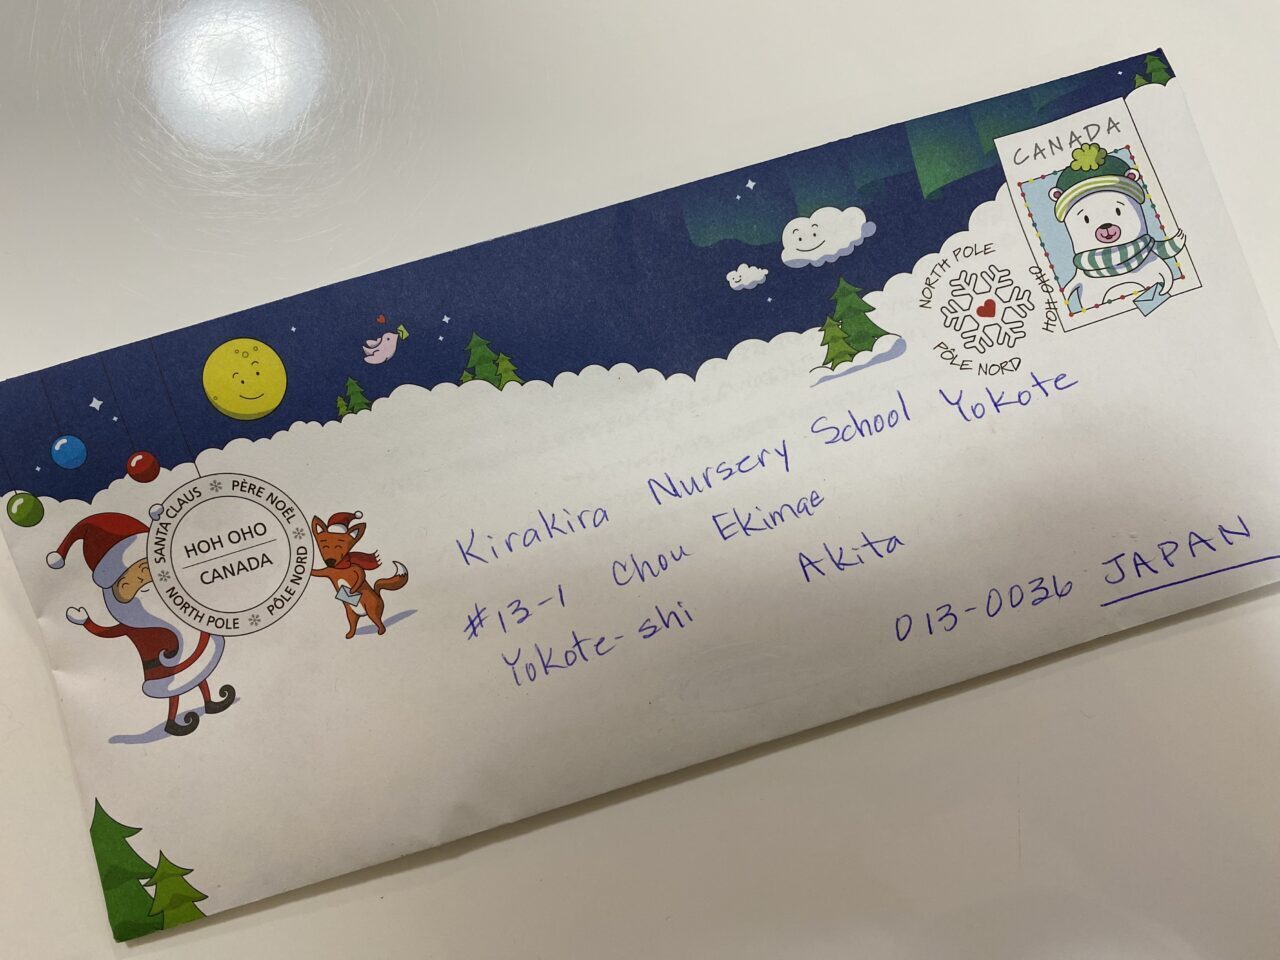 CANADA
NORTH POLE
HOH OHO
PÔLE NORD
SANTA CLAUS
PÈRE NOËL
HOH OHO
CANADA
NORTH POLE
PÔLE NORD
Kirakira Nursery School Yokote
#13-1 Chou Ekimae
Yokote-shi Akita
013-0036 JAPAN